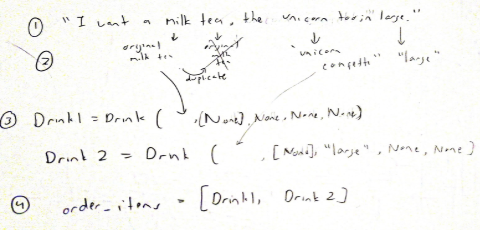 ① "I want a milk tea, the unicorn too in large."
original milk tea
original milk tea
"unicorn confetti"
"large"
②
duplicate
③ Drink1 = Drink ( , [None], None, None, None)
Drink 2 = Drink ( , [None], "large", None, None)
④ order_items = [Drink1, Drink 2]